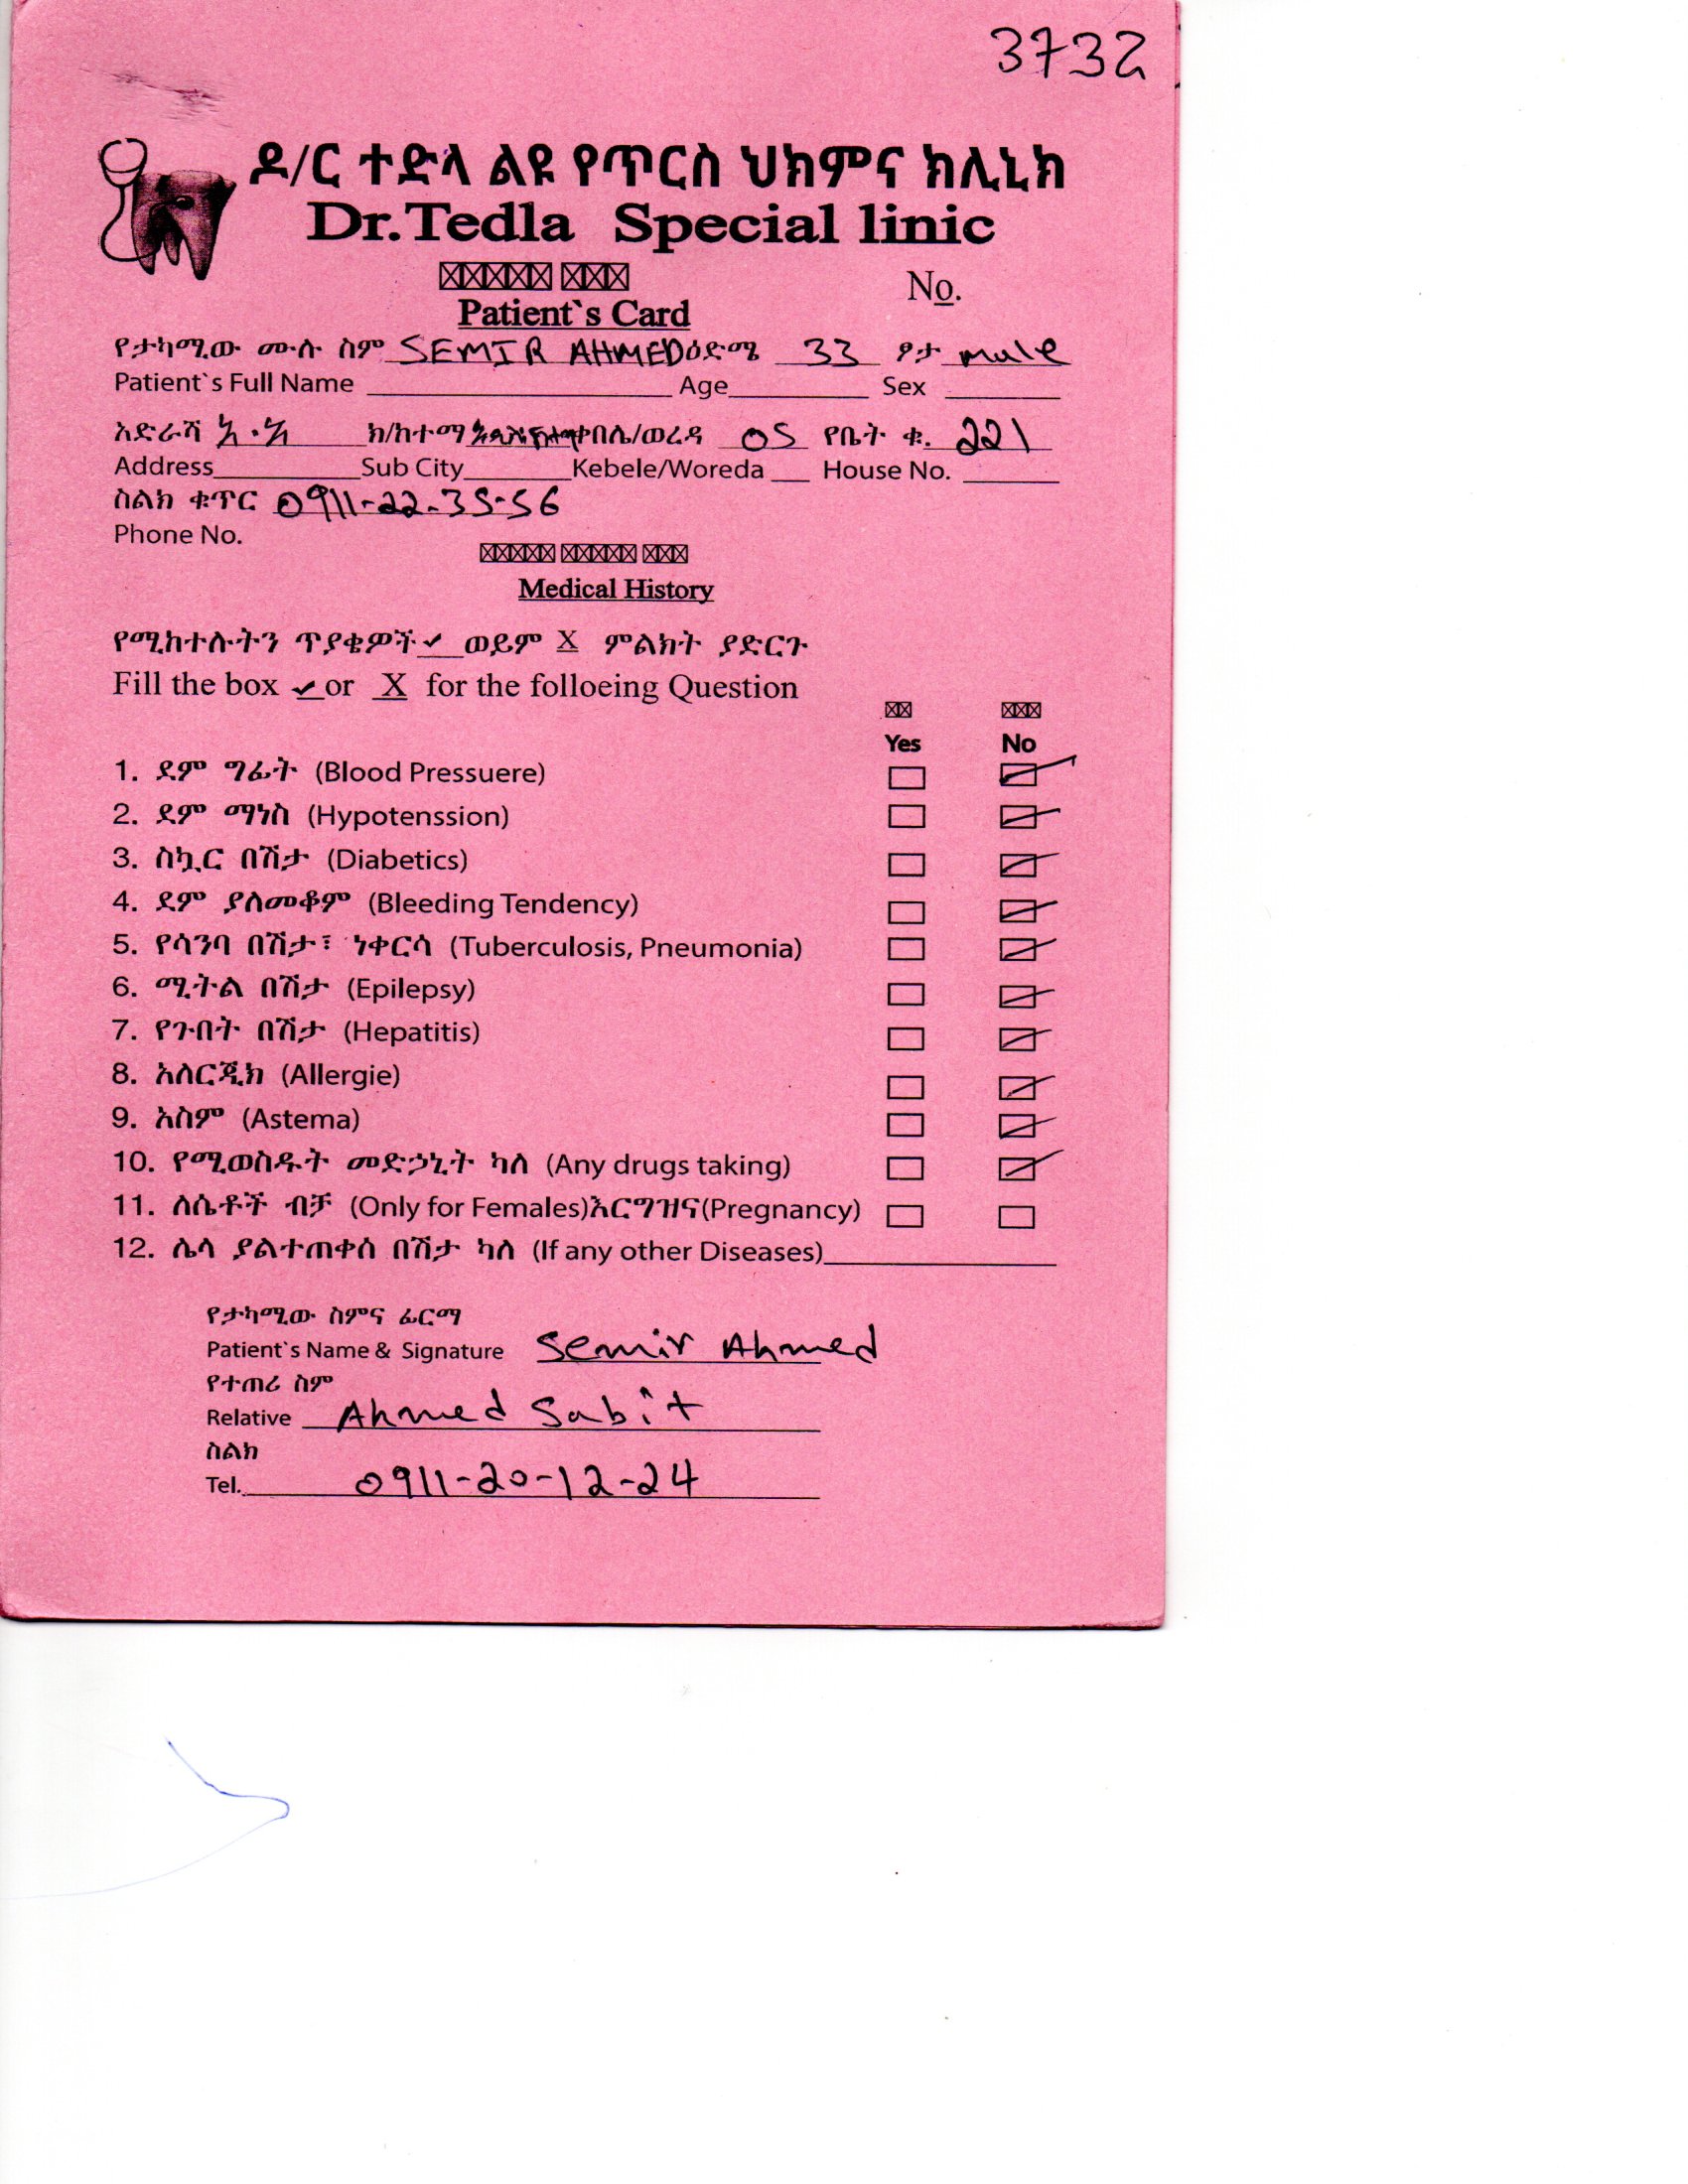 3732
ዶ/ር ተድላ ልዩ የጥርስ ህክምና ክሊኒክ
Dr.Tedla Special linic
No.
Patient`s Card
የታካሚው ሙሉ ስም SEMIR AHMED ዕድሜ 33 ፆታ male
Patient`s Full Name Age Sex
አድራሻ አ.አ ክ/ከተማ ቀበሌ/ወረዳ 05 የቤት ቁ. 221
Address Sub City Kebele/Woreda House No.
ስልክ ቁጥር 0911-22-35-56
Phone No.
Medical History
የሚከተሉትን ጥያቄዎች ✓ ወይም X ምልክት ያድርጉ
Fill the box ✓ or X for the folloeing Question
Yes No
1. ደም ግፊት (Blood Pressuere)
2. ደም ማነስ (Hypotenssion)
3. ስኳር በሽታ (Diabetics)
4. ደም ያለመቆም (Bleeding Tendency)
5. የሳንባ በሽታ፣ ነቀርሳ (Tuberculosis, Pneumonia)
6. ሚትል በሽታ (Epilepsy)
7. የጉበት በሽታ (Hepatitis)
8. አለርጂክ (Allergie)
9. አስም (Astema)
10. የሚወስዱት መድኃኒት ካለ (Any drugs taking)
11. ለሴቶች ብቻ (Only for Females)እርግዝና(Pregnancy)
12. ሌላ ያልተጠቀሰ በሽታ ካለ (If any other Diseases)
የታካሚው ስምና ፊርማ
Patient`s Name & Signature Semir Ahmed
የተጠሪ ስም
Relative Ahmed Sabit
ስልክ
Tel. 0911-20-12-24